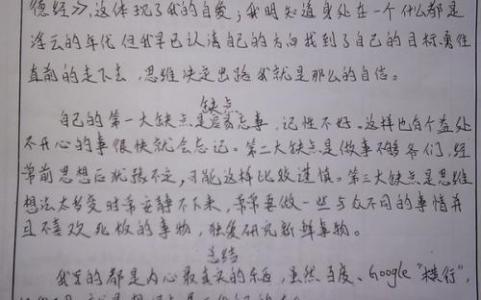 德经》，这体现了我的自爱；我明知道身处在一个什么都是
浮云的年代，但我早已认清自己的方向找到了自己的目标，勇往
直前的走下去，思维决定出路 我就是那么的自信。
缺点
自己的第一大缺点是容易忘事，记性不好。这样也有个益处
不开心的事很快就会忘记。第二大缺点是做事不够哥们，经
常前思想后犹豫不定，可能这样比较谨慎。第三大缺点是思维
想法太多变时常安静不下来，常常要做一些与众不同的事情并
且不喜欢死板的事物，独爱研究新鲜事物。
总结
我写的都是内心最真实的东西，虽然百度、Google "横行"，